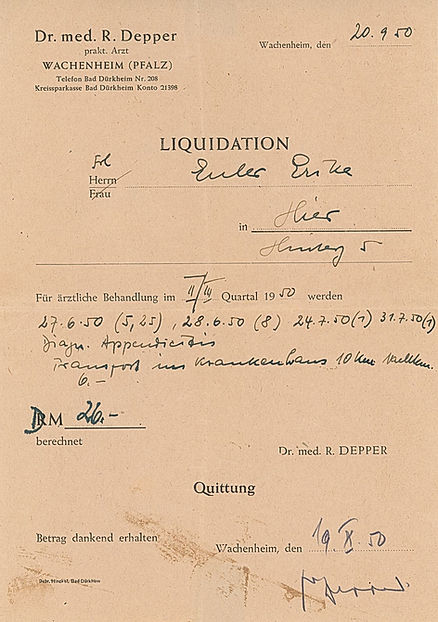 Dr. med. R. Depper
prakt. Arzt
WACHENHEIM (PFALZ)
Telefon Bad Dürkheim Nr. 208
Kreissparkasse Bad Dürkheim Konto 21398
Wachenheim, den 20.9.50
LIQUIDATION
Frl
Herrn Euler Erika
Frau
in Hier
5
Für ärztliche Behandlung im II/III Quartal 1950 werden
27.6.50 (5,25), 28.6.50 (8) 24.7.50(1) 31.7.50(1)
Diagn. Appendicitis
Transport ins Krankenhaus 10 Km
6.-
DRM 26.-
berechnet
Dr. med. R. DEPPER
Quittung
Betrag dankend erhalten
Wachenheim, den 19. X. 50